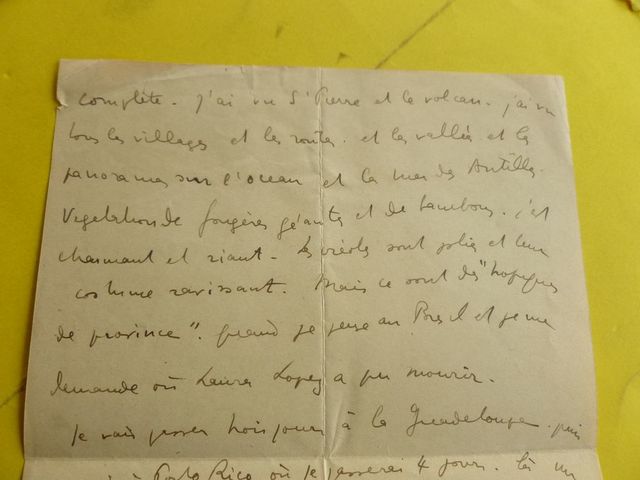 complète. j'ai vu St Pierre et le volcan. j'ai vu
tous les villages et les routes. et les vallées et les
panoramas sur l'océan et la mer des Antilles.
Vegetation de fougères géantes et de bambous. c'est
charmant et riant. Les créoles sont jolies et leur
costume ravissant. Mais ce sont des "tropiques
de province". quand je pense au Brésil et je me
demande où Laura Lopez a pu mourir.
Je vais passer trois jours à la Guadeloupe. puis
à Porto Rico où je passerai 4 jours. là un